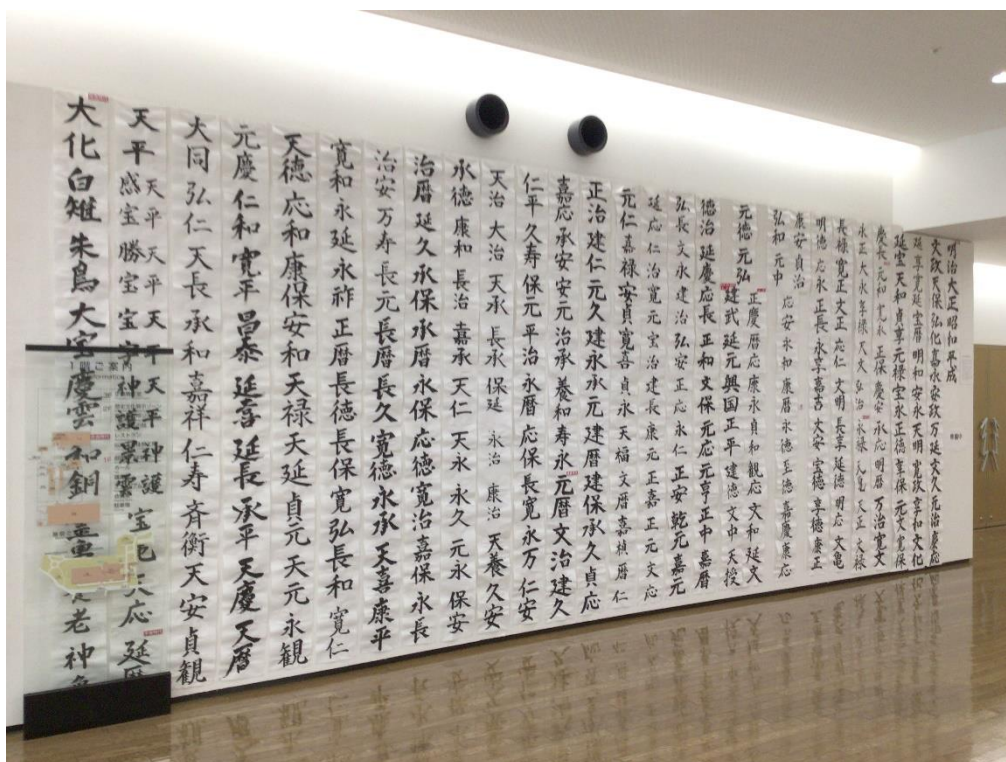 大化 白雉 朱鳥 大宝 慶雲 和銅 老 神亀
天平 天平感宝 天平勝宝 天平宝字 天平神護 神護景雲 宝亀 天応 延暦
大同 弘仁 天長 承和 嘉祥 仁寿 斉衡 天安 貞観
元慶 仁和 寛平 昌泰 延喜 延長 承平 天慶 天暦
天徳 応和 康保 安和 天禄 天延 貞元 天元 永観
寛和 永延 永祚 正暦 長徳 長保 寛弘 長和 寛仁
治安 万寿 長元 長暦 長久 寛徳 永承 天喜 康平
治暦 延久 承保 承暦 永保 応徳 寛治 嘉保 永長
承徳 康和 長治 嘉承 天仁 天永 永久 元永 保安
天治 大治 天承 長承 保延 永治 康治 天養 久安
仁平 久寿 保元 平治 永暦 応保 長寛 永万 仁安
嘉応 承安 安元 治承 養和 寿永 元暦 文治 建久
正治 建仁 元久 建永 承元 建暦 建保 承久 貞応
元仁 嘉禄 安貞 寛喜 貞永 天福 文暦 嘉禎 暦仁
延応 仁治 寛元 宝治 建長 康元 正嘉 正元 文応
弘長 文永 建治 弘安 正応 永仁 正安 乾元 嘉元
徳治 延慶 応長 正和 文保 元応 元亨 正中 嘉暦
元徳 元弘
建武 延元 興国 正平 建徳 文中 天授
正慶 暦応 康永 貞和 観応 文和 延文
弘和 元中
康安 貞治
応安 永和 康暦 永徳 至徳 嘉慶 康応
明徳 応永 正長 永享 嘉吉 文安 宝徳 享徳 康正
長禄 寛正 文正 応仁 文明 長享 延徳 明応 文亀
永正 大永 享禄 天文 弘治 永禄 元亀 天正 文禄
慶長 元和 寛永 正保 慶安 承応 明暦 万治 寛文
延宝 天和 貞享 元禄 宝永 正徳 享保 元文 寛保
延享 寛延 宝暦 明和 安永 天明 寛政 享和 文化
文政 天保 弘化 嘉永 安政 万延 文久 元治 慶応
明治 大正 昭和 平成
1階ご案内